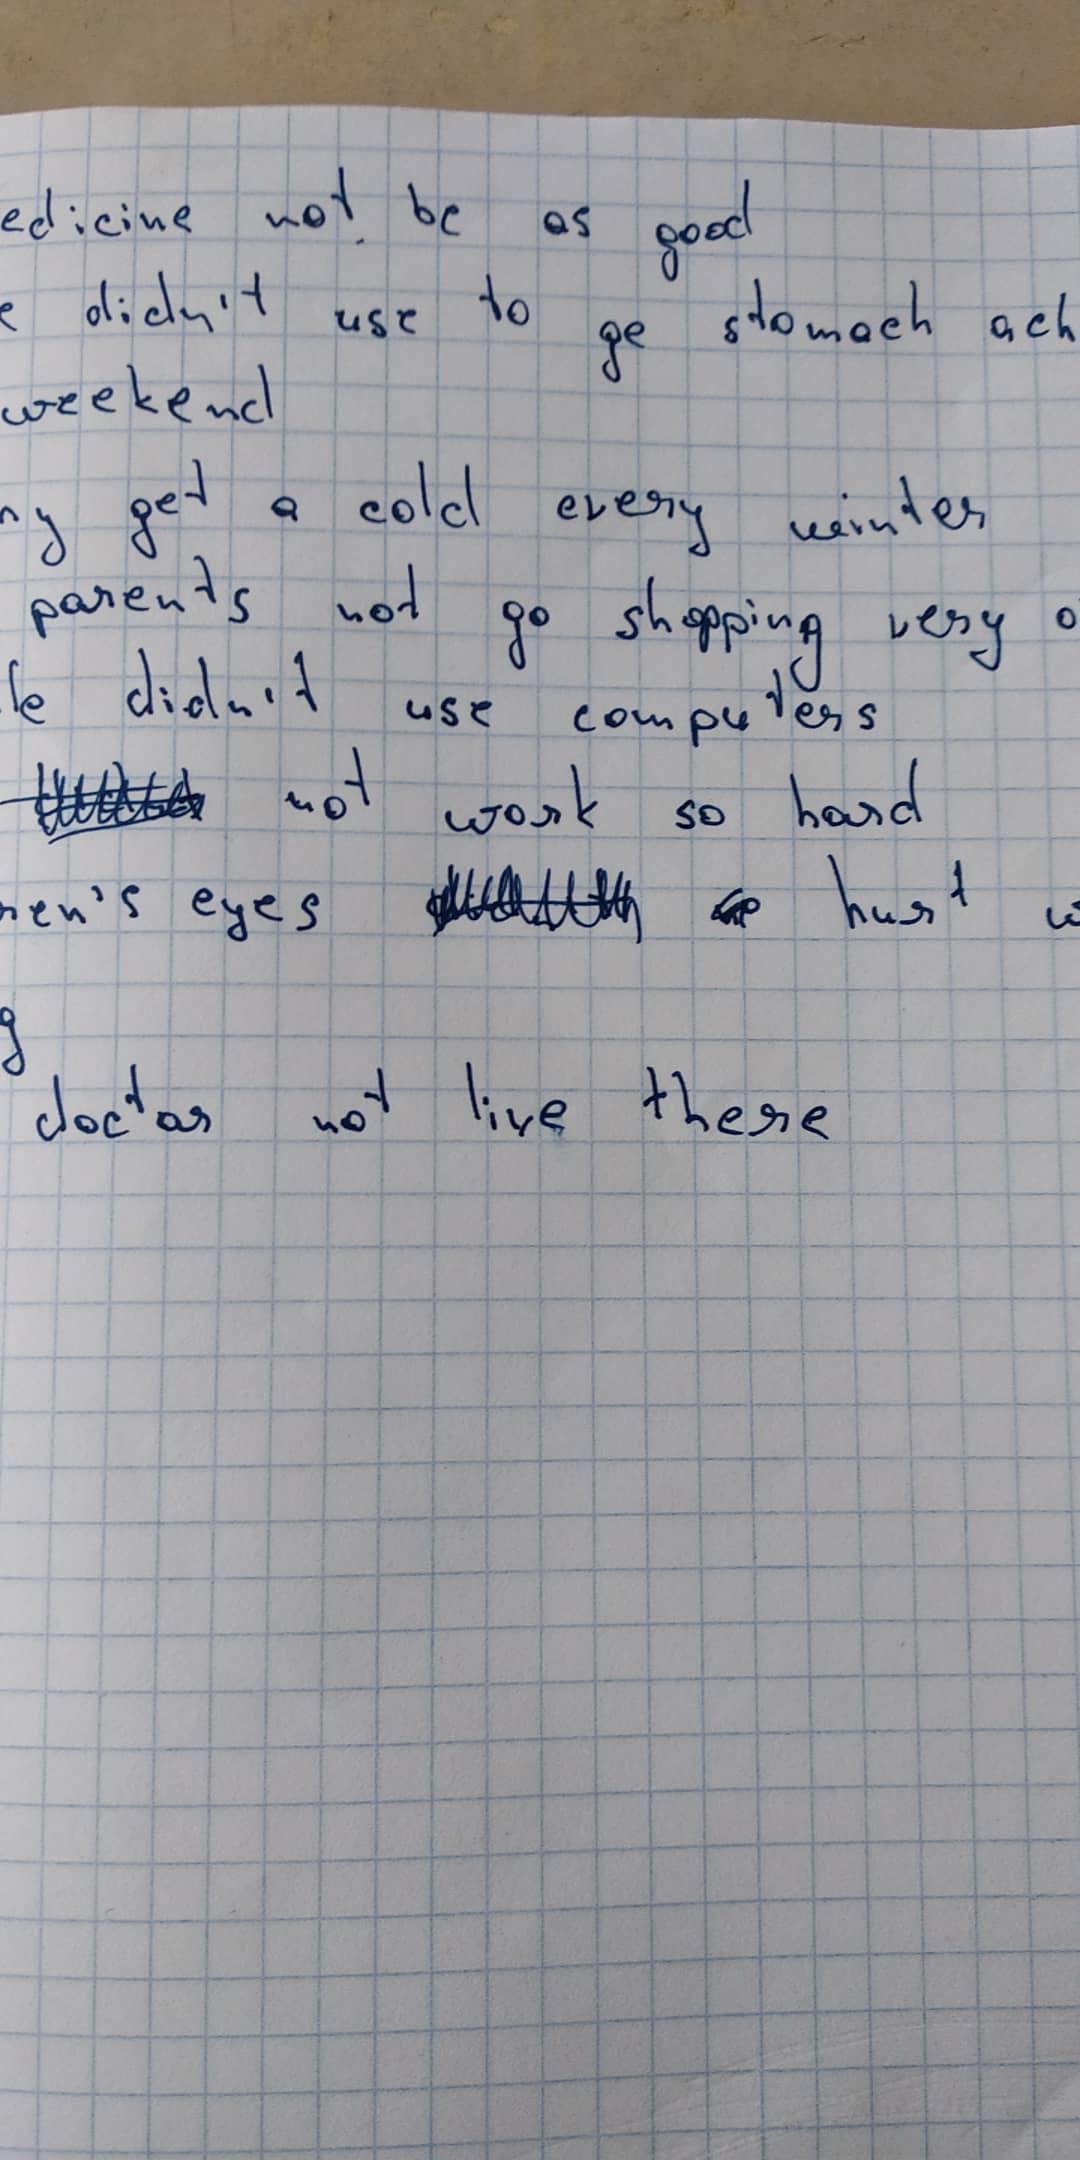 edicine not be as good
e didn't use to ge stomach ach
weekend
ny get a cold every winter
parents not go shopping very o
le didn't use computers
not work so hard
ren's eyes hurt w
g
doctor not live there